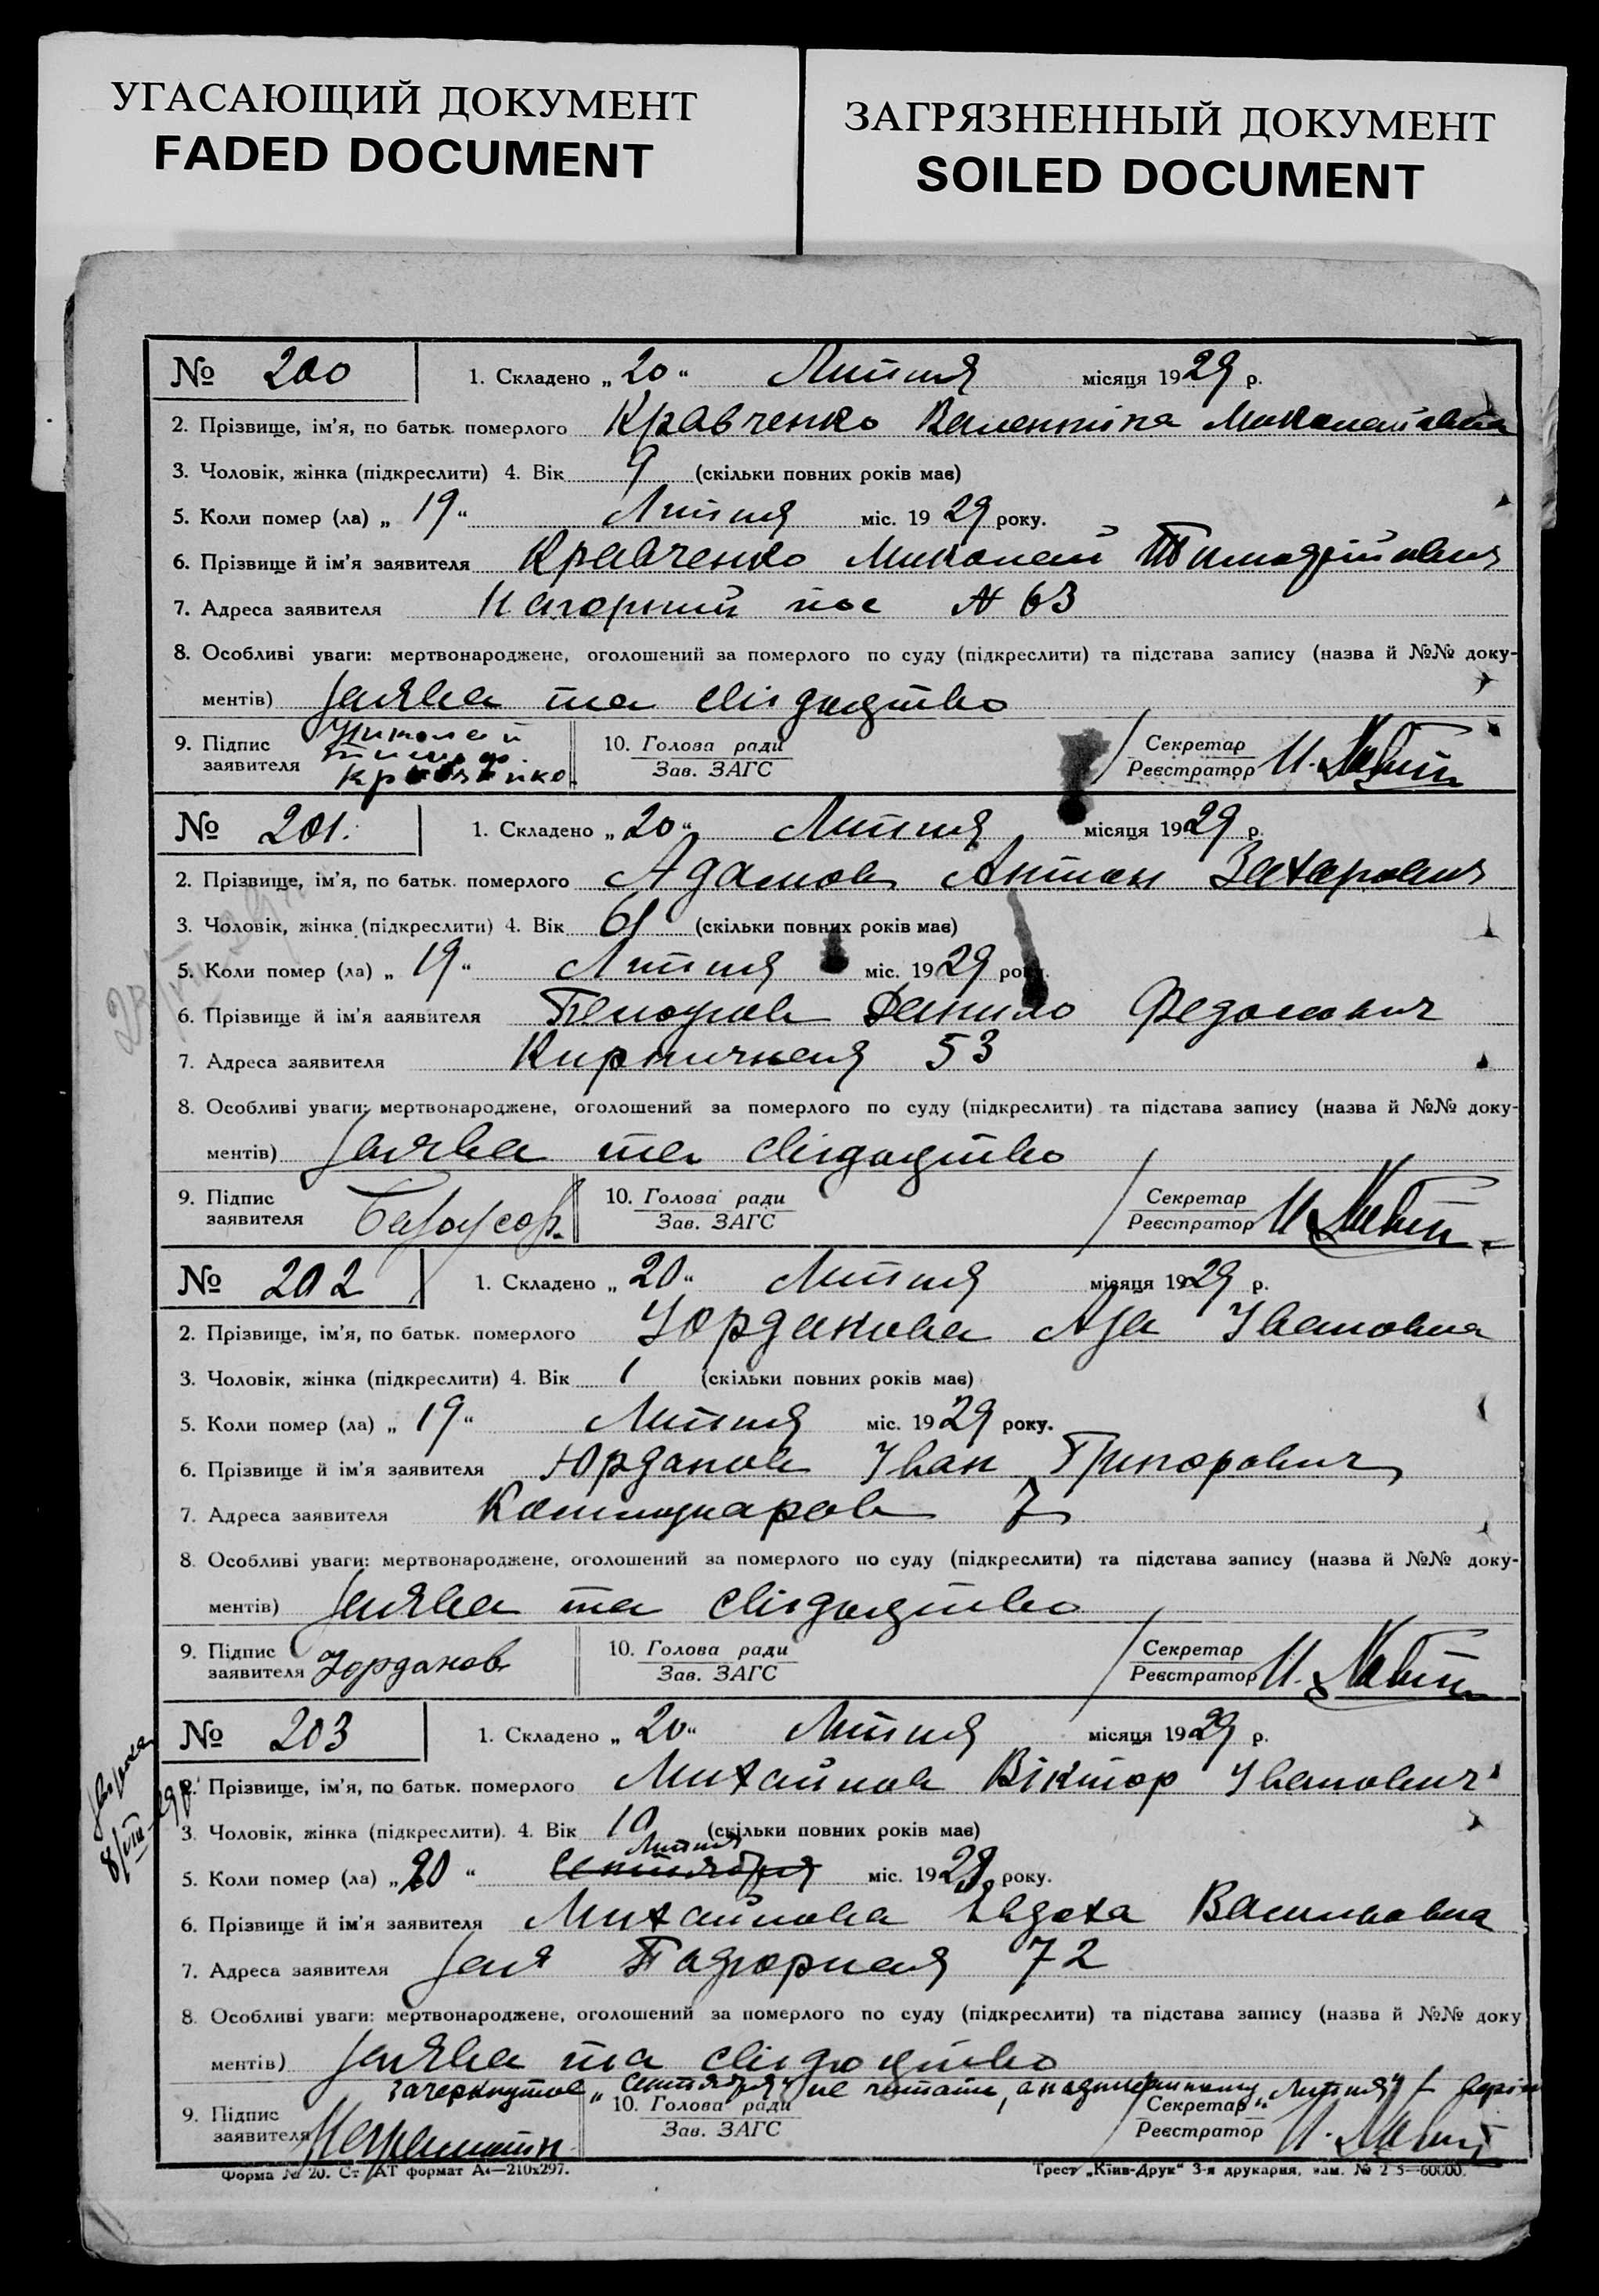 УГАСАЮЩИЙ ДОКУМЕНТ
FADED DOCUMENT
ЗАГРЯЗНЕННЫЙ ДОКУМЕНТ
SOILED DOCUMENT
№ 200 1. Складено „ 20 “ Липня місяця 1929 р.
2. Прізвище, ім'я, по батьк. померлого Кравченко Валентіна Миколаївна
3. Чоловік, жінка (підкреслити) 4. Вік 9 (скільки повних років має)
5. Коли помер (ла) „ 19 “ Липня міс. 19 29 року.
6. Прізвище й ім'я заявителя Кравченко Миколай
7. Адреса заявителя Нагорний пос № 63
8. Особливі уваги: мертвонароджене, оголошений за померлого по суду (підкреслити) та підстава запису (назва й №№ доку-
ментів) Заява та свідоцтво
9. Підпис заявителя Николай 10. Голова ради Зав. ЗАГС Секретар Реєстратор
№ 201. 1. Складено „ 20 “ Липня місяця 1929 р.
2. Прізвище, ім'я, по батьк. померлого Адамов Антон Захарович
3. Чоловік, жінка (підкреслити) 4. Вік 61 (скільки повних років має)
5. Коли помер (ла) „ 19 “ Липня міс. 1929 року.
6. Прізвище й ім'я заявителя Данило
7. Адреса заявителя Кирпичная 53
8. Особливі уваги: мертвонароджене, оголошений за померлого по суду (підкреслити) та підстава запису (назва й №№ доку-
ментів) Заява та свідоцтво
9. Підпис заявителя 10. Голова ради Зав. ЗАГС Секретар Реєстратор
№ 202 1. Складено „ 20 “ Липня місяця 1929 р.
2. Прізвище, ім'я, по батьк. померлого Юрданова Аза Івановна
3. Чоловік, жінка (підкреслити) 4. Вік 1 (скільки повних років має)
5. Коли помер (ла) „ 19 “ Липня міс. 1929 року.
6. Прізвище й ім'я заявителя Юрданов Іван Григорович
7. Адреса заявителя Коммунаров 7
8. Особливі уваги: мертвонароджене, оголошений за померлого по суду (підкреслити) та підстава запису (назва й №№ доку-
ментів) Заява та свідоцтво
9. Підпис заявителя Юрданов 10. Голова ради Зав. ЗАГС Секретар Реєстратор
№ 203 1. Складено „ 20 “ Липня місяця 1929 р.
2. Прізвище, ім'я, по батьк. померлого Михайлов Віктор Іванович
3. Чоловік, жінка (підкреслити). 4. Вік 10 (скільки повних років має)
Липня
5. Коли помер (ла) „ 20 “ Сентября міс. 1929 року.
6. Прізвище й ім'я заявителя Михайлова Євдоха Василовна
7. Адреса заявителя 72
8. Особливі уваги: мертвонароджене, оголошений за померлого по суду (підкреслити) та підстава запису (назва й №№ доку
ментів) Заява та свідоцтво
зачеркнутое „Сентября“ не читати, а „Липня“
9. Підпис заявителя 10. Голова ради Зав. ЗАГС Секретар Реєстратор
8/VIII
Форма № 20. Ст АТ формат А4—210х297.
Трест „Київ-Друк“ 3-я друкарня, зам. № 2 5—60000.